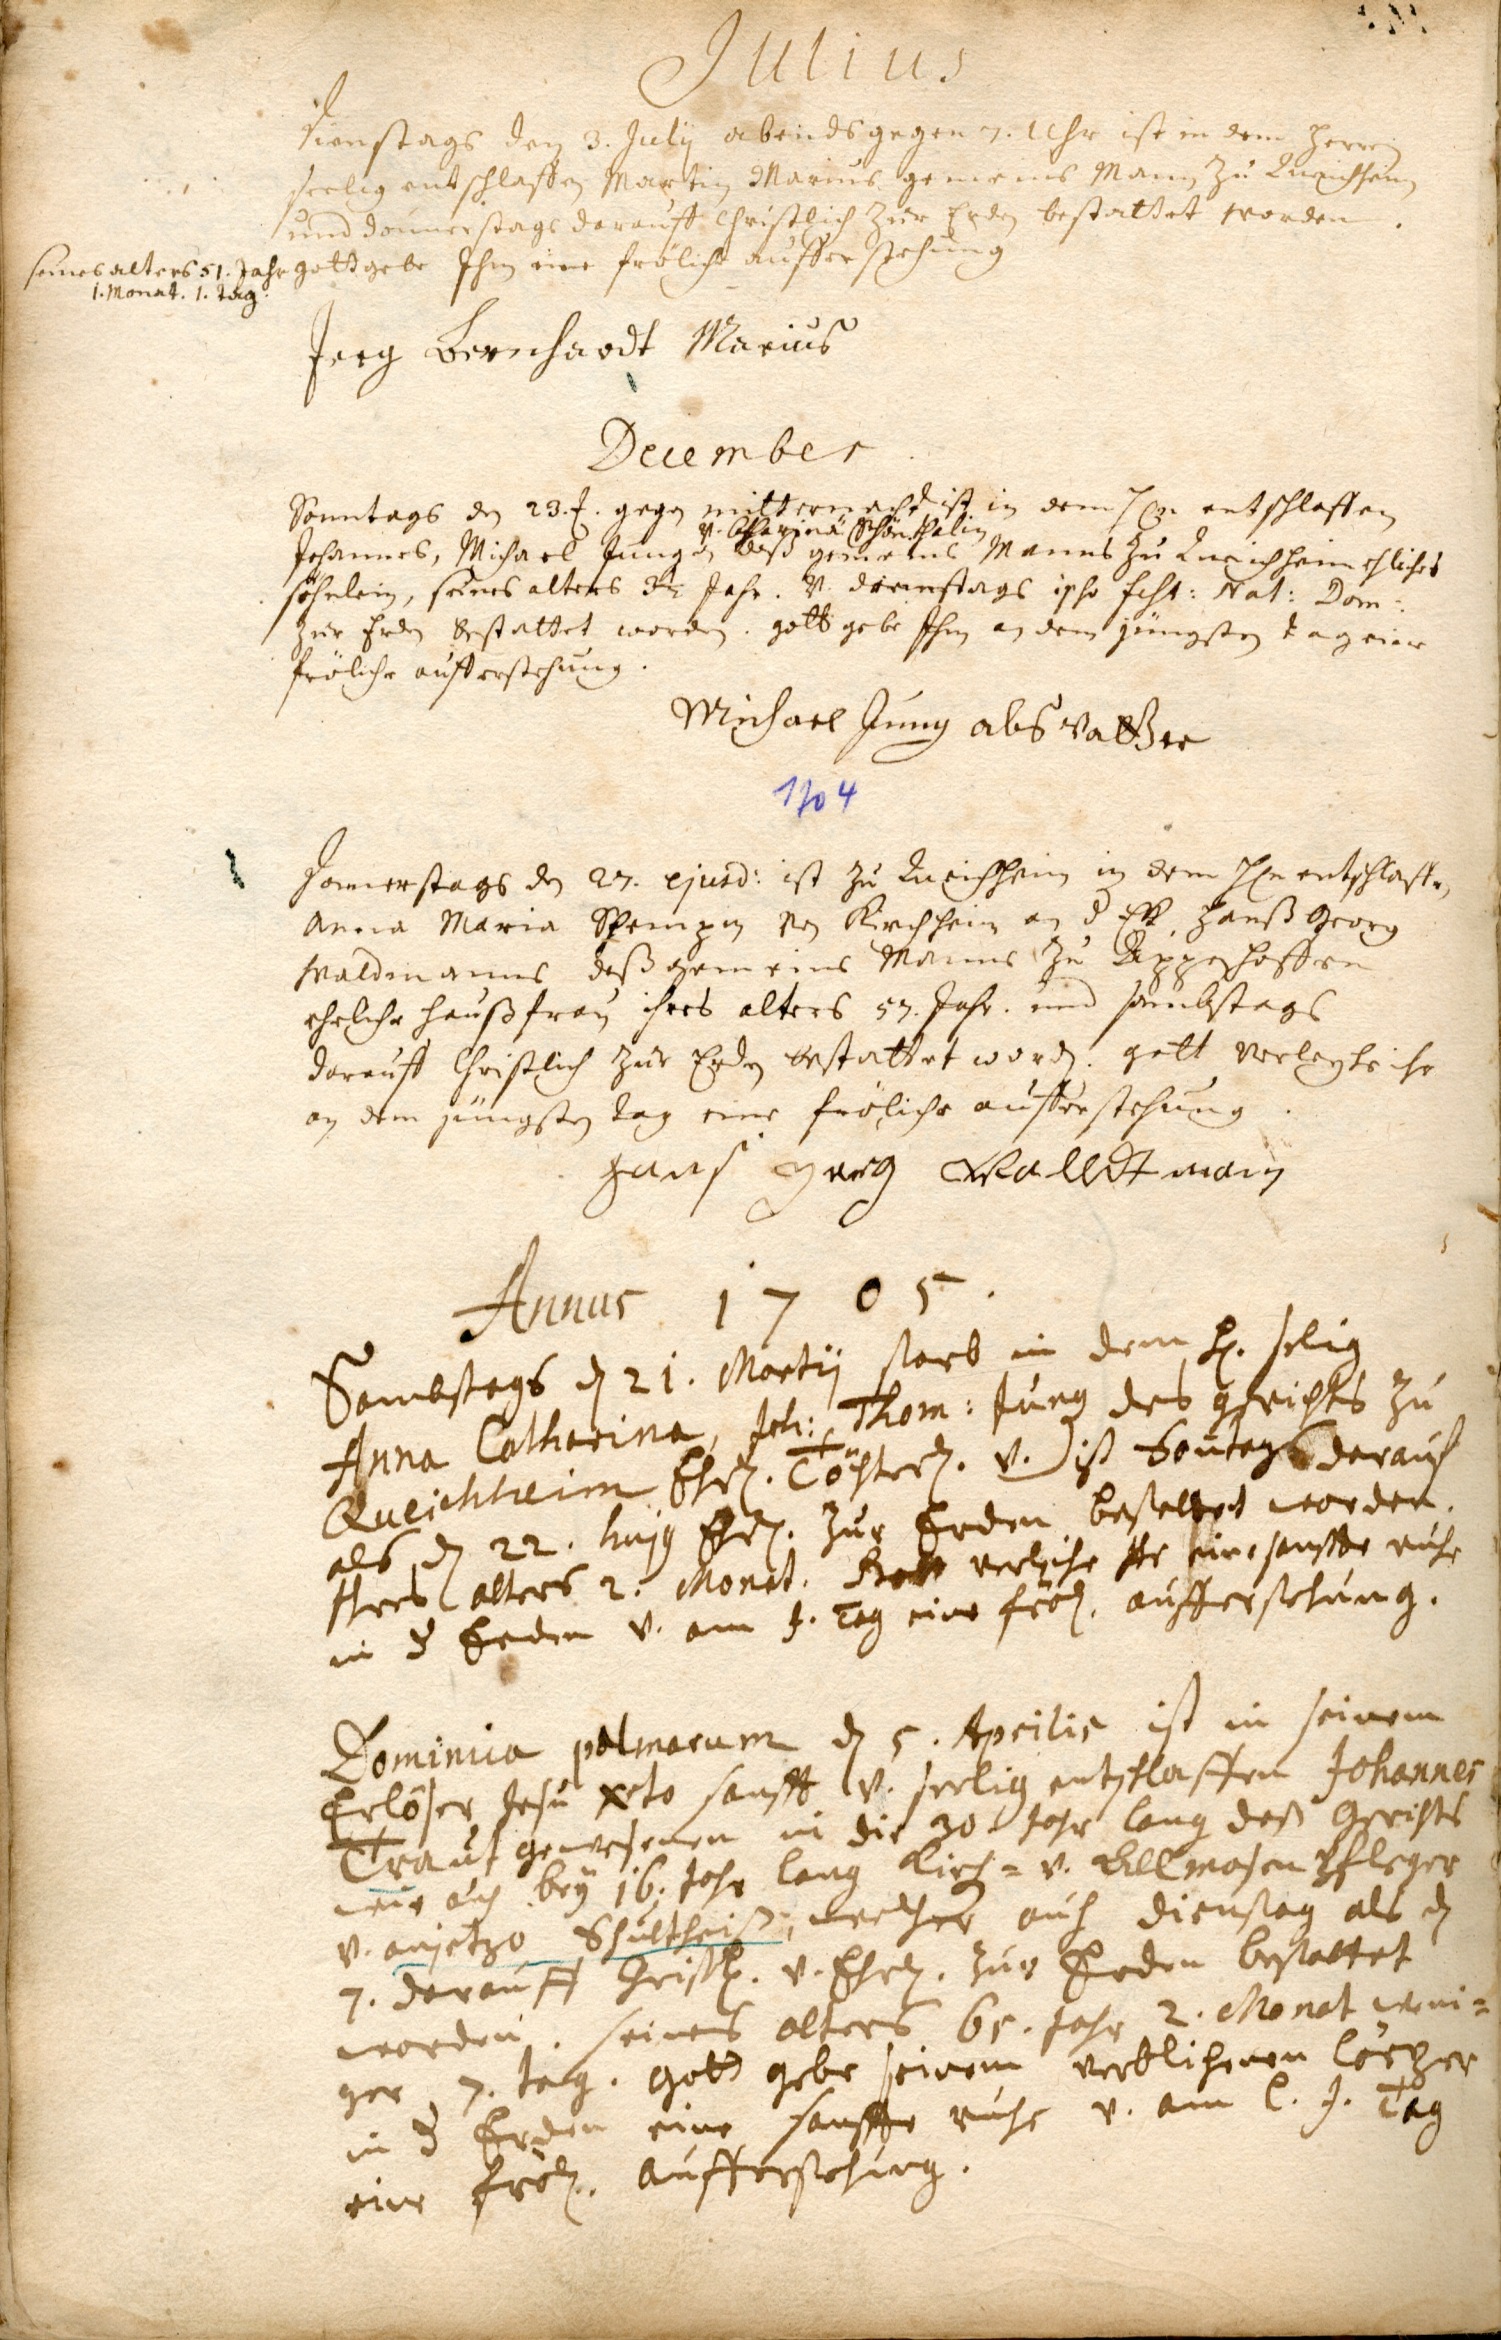 Julius
Dienstags den 3. Julij abends gegen 7. Uhr ist in dem Herren
seelig entschlaffen Martin Marius gemeins Mann zu Queichheim
und donnerstags darauff Christlich zur Erden bestattet worden.
seines alters 51. Jahr
1. Monat. 1. tag.
gott gebe Ihm eine fröliche aufferstehung
Jerg Bernhardt Marius
December
Sonntags den 23. gegen mitternacht ist in dem Hn entschlaffen
v. Schönthalin
Johannes, Michael Jungen deß gemeins Manns zu Queichheim ehliches
söhnlein, seines alters Jahr. v. dienstags ipso fest: Nat: Dom:
zur Erden bestattet worden. gott gebe Ihm an dem jüngsten tag eine
fröliche aufferstehung.
Michael Jung als vatter
1704
Donnerstags den 27. ejusd: ist zu Queichheim in dem Hn entschlaffen
Anna Maria von Kirchheim an d Eck, Hanß Georg
Waldmanns deß gemeins Manns zu
ehliche haußfrau ihres alters 57. Jahr. und sambstags
darauff Christlich zur Erden bestattet worden. gott verleyhe ihr
an dem jüngsten tag eine fröliche aufferstehung.
Hans Jerg Walldtman
Annus 1705.
Sambstags d 21. Martij starb in dem H. selig
Anna Catharina, Joh: Thom: Jung des gerichts zu
Queichheim Ehel. Töchterl. v. ist Sontags darauf
als d 22. hujg Ehrl. zur Erden bestattet worden.
Ihres alters 2. Monat. Gott verleihe Ihr eine sanffte ruhe
in d Erden v. am J. Tag eine fröl. aufferstehung.
Dominica palmarum d 5. Aprilis ist in seinem
Erlöser Jesu xsto sanfft v. seelig entschlaffen Johannes
Traut gewesenen in die 30. Jahr lang deß Gerichts
wie auch bey 16. Jahr lang Kirch= v. Allmosen Pfleger
v. anjetzo Schultheiß, welcher auch dienstag als d
7. darauff Christl. v. Ehrl. zur Erden bestattet
worden. seines alters 65. Jahr 2. Monat weni=
ger 7. tag. Gott gebe seinem verblichenen Cörper
in d Erden eine sanffte ruhe v. am l. J. Tag
eine fröl. aufferstehung.